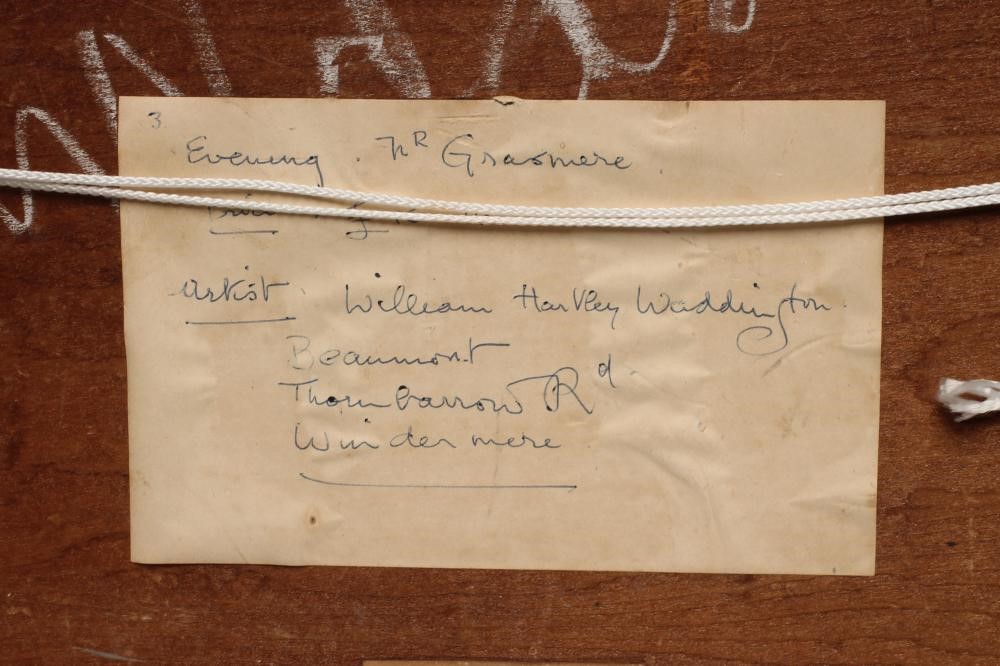 3
Evening . Nᴿ Grasmere
Price
Artist. William Hartley Waddington.
Beaumont
Thornbarrow Rᵈ.
Windermere